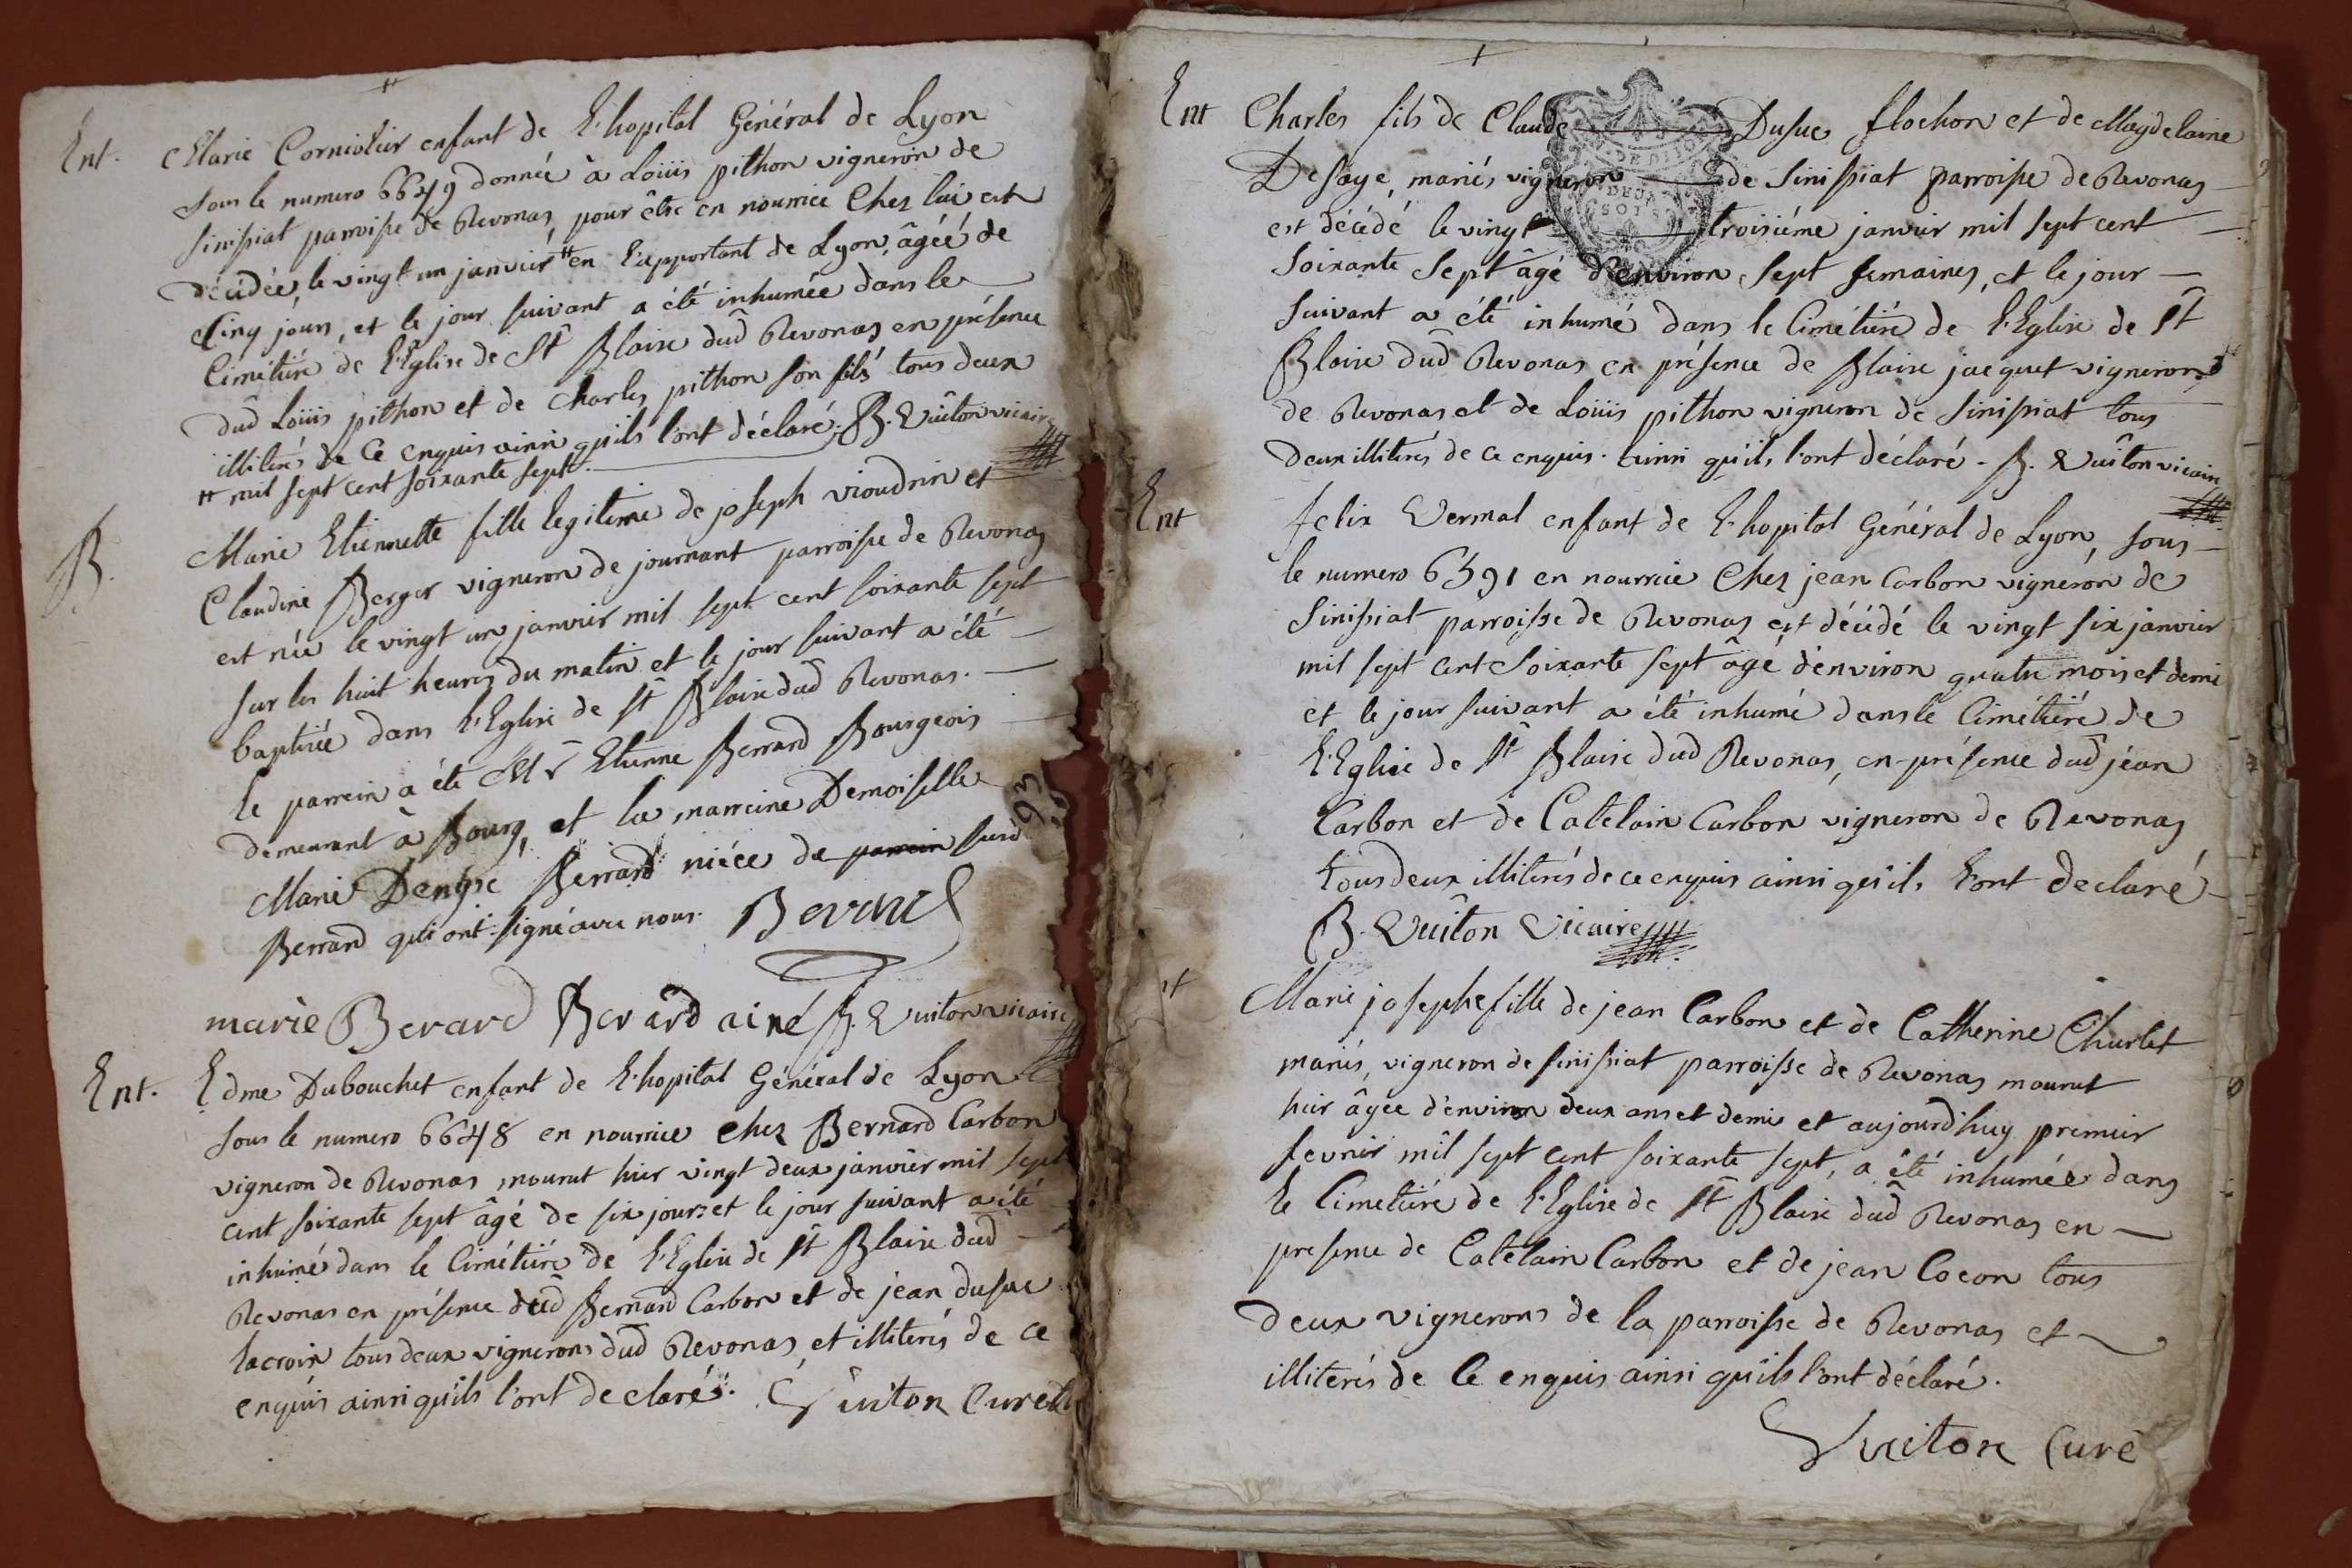 Ent. Marie Corniolier enfant de l'hopital Général de Lyon
sous le numero 6649 donnée à Loüis pithon vigneron de
Sinissiat parroisse de Revonas, pour être en nourrice Chez lui est
décédée, le vingt un janvier # en l'apportant de Lyon, âgée de
Cinq jours, et le jour suivant a été inhumée dans le
Cimétière de l'Eglise de St Blaise dud Revonas en présence
dud Loüis pithon et de Charles pithon son fils tous deux
illiterés de Ce enquis ainsi qu'ils l'ont déclaré. B. Vuiton vicaire
# mil sept cent soixante sept.
B. Marie Etiennette fille legitime de joseph vioudrin et
Claudine Berger vigneron de journant parroisse de Revonas
est née le vingt un janvier mil sept cent soixante sept
sur les huit heures du matin et le jour suivant a été
baptisée dans l'Eglise de St Blaise dud Revonas.
le parrein a été Mr Etienne Berrard Bourgeois
demeurant à Bourg, et la marreine Demoiselle
Marie Denyse Berrard niéce de parrein
Berrard qui ont signé avec nous. Berard
93
marie Berard Berard ainé B. Vuiton vicaire
Ent. Edme Dubouchet enfant de l'hopital Général de Lyon
sous le numero 6648 en nourrice chez Bernard Carbon
vigneron de Revonas mourut hier vingt deux janvier mil sept
cent soixante sept âgé de six jours et le jour suivant a été
inhumé dans le Cimétière de l'Eglise de St Blaise dud
Revonas en présence dud Bernard Carbon et de jean dusuc
lacroix tous deux vignerons dud Revonas, et illiterés de ce
enquis ainsi qu'ils l'ont declaré. Vuiton Curé
Ent Charles fils de Claude Dusuc flochon et de Magdelaine
Desaye, mariés, vigneron de Sinissiat parroisse de Revonas
est décédé le vingt troisiéme janvier mil sept cent
soixante sept âgé d'environ sept semaines, et le jour
suivant a été inhumé dans le Cimétière de l'Eglise de St
Blaise dud Revonas en présence de Blaise jacquet vigneron
de Revonas et de Loüis pithon vigneron de Sinissiat tous
deux illiterés de ce enquis. ainsi qu'ils l'ont déclaré. B. Vuiton vicaire
Ent felix Vermal enfant de l'hopital Général de Lyon, sous
le numero 6591 en nourrice Chez jean Carbon vigneron de
Sinissiat parroisse de Revonas est décédé le vingt six janvier
mil sept cent soixante sept âgé d'environ quatre mois et demi
et le jour suivant a été inhumé dans le Cimétière de
l'Eglise de St Blaise dud Revonas, en présence dud jean
Carbon et de Catelain Carbon vigneron de Revonas
tous deux illiterés de ce enquis ainsi qu'ils l'ont declaré
B. Vuiton Vicaire
Marie josephe fille de jean Carbon et de Catherine Churlet
mariés, vigneron de sinissiat parroisse de Revonas mourut
hier âgée d'environ deux ans et demi et aujourd'huy premier
fevrier mil sept cent soixante sept, a été inhumée dans
le Cimetière de l'Eglise de St Blaise dud Revonas en
presence de Catelain Carbon et de jean Cocon tous
deux vignerons de la parroisse de Revonas et
illiterés de Ce enquis ainsi qu'ils l'ont déclaré.
Vuiton Curé